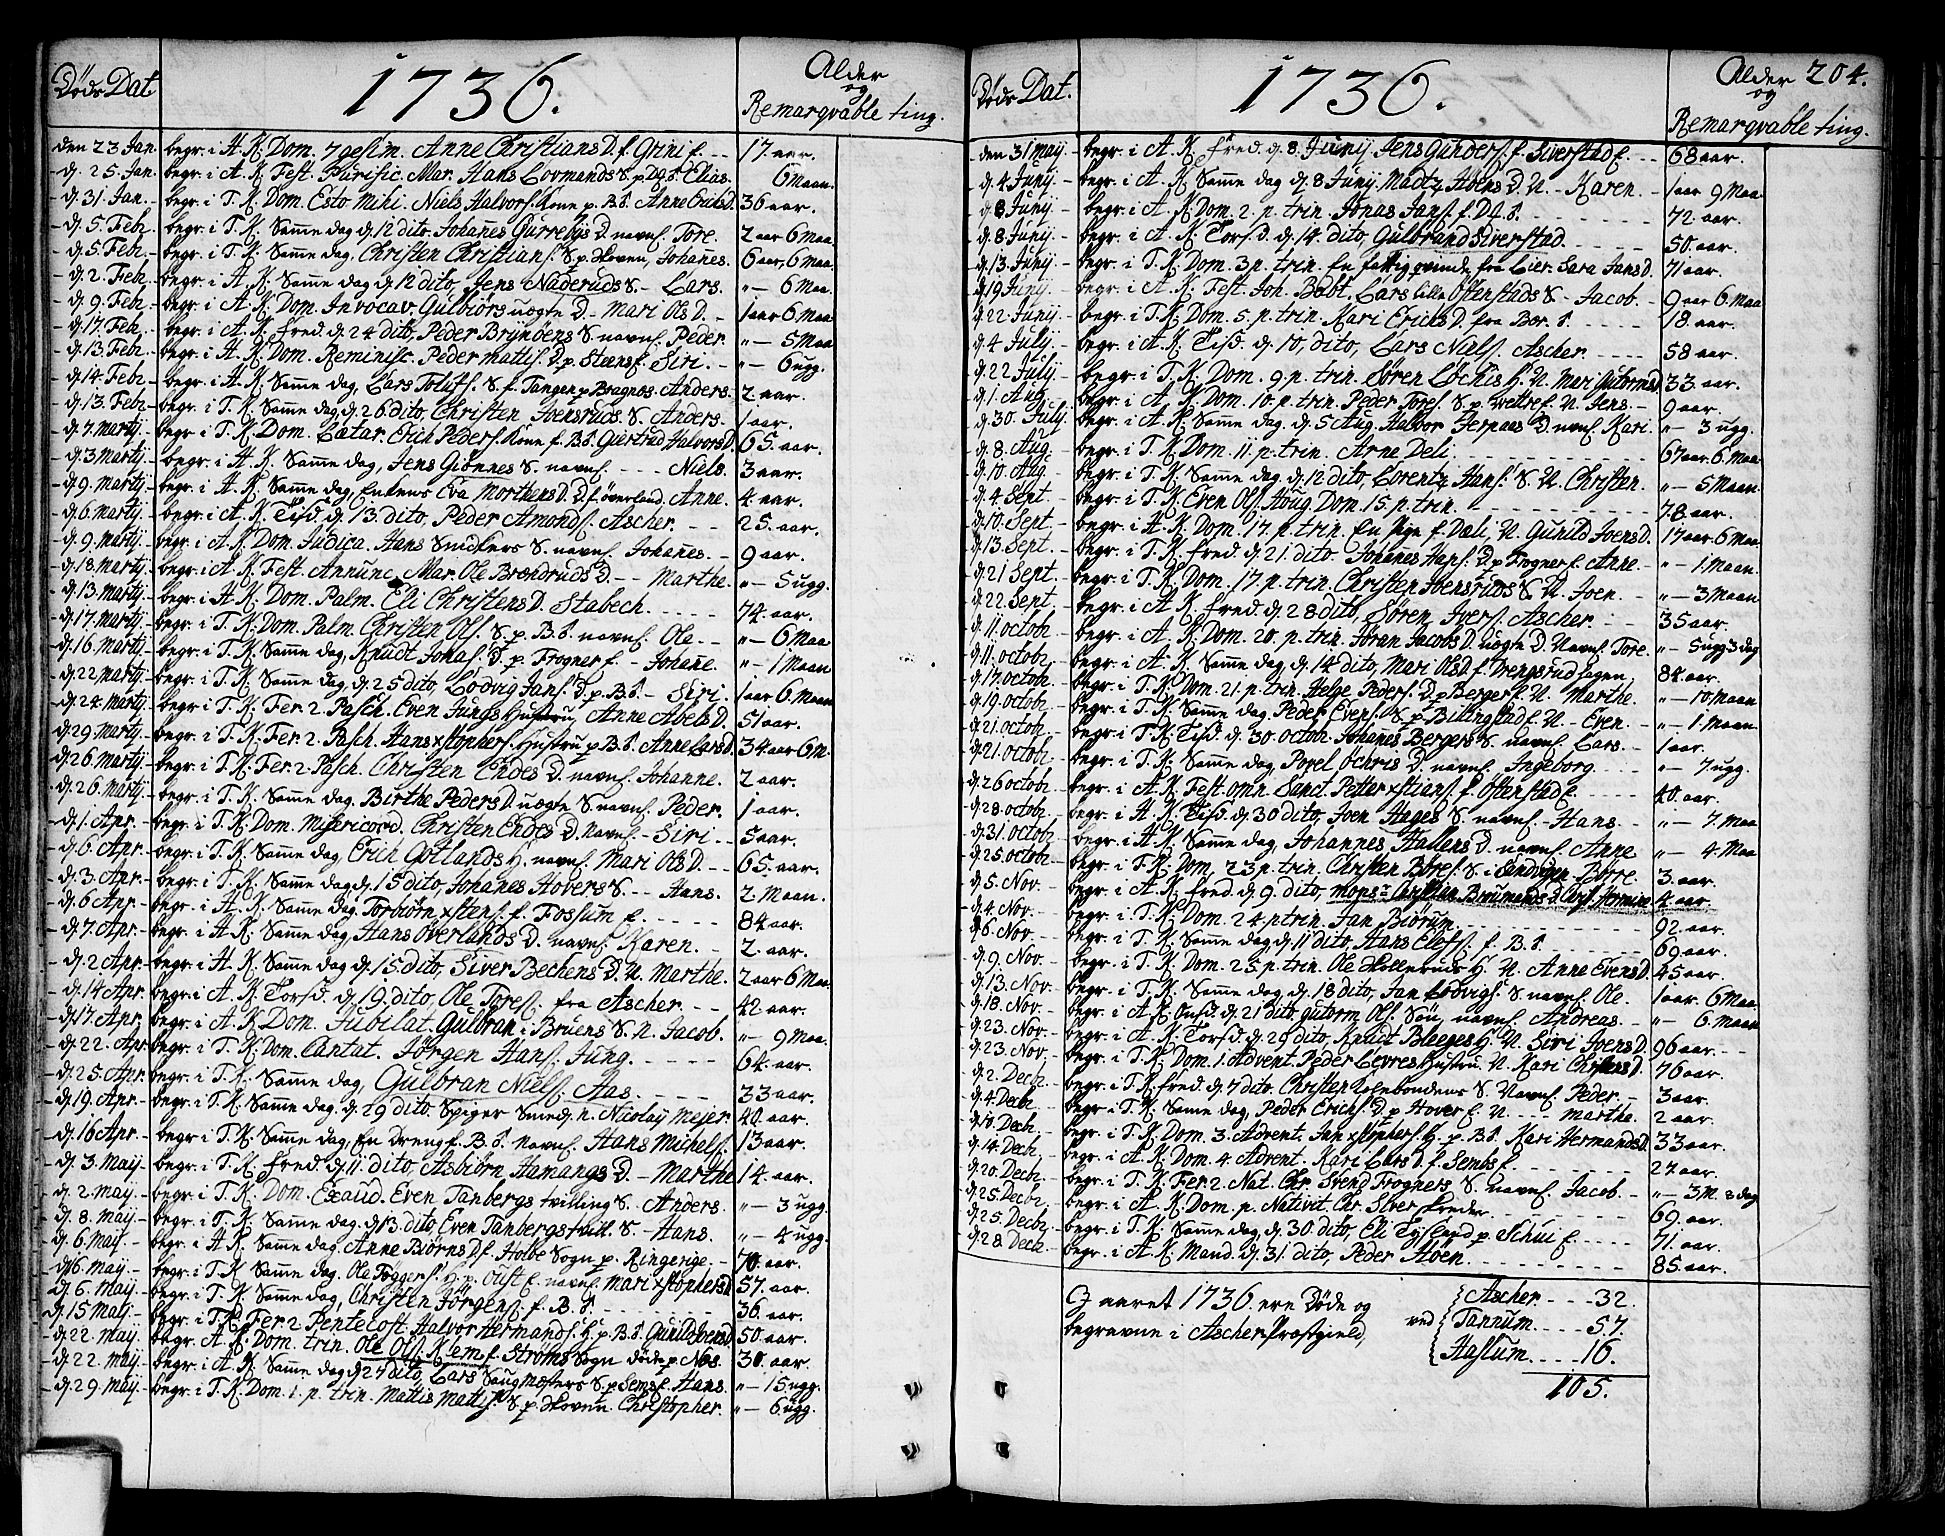 Døds Dat.
1736.
Alder
og
Remarqvable ting.
den 23 Jan. begr. i A. K. Dom. 7gesim. Anne Christians D. f. Grini E. 17. aar.
d. 25. Jan. begr. i A. K. Fest. Purific. Mar. Hans Lovmands S. Elias. 6 Maan.
d. 31. Jan. begr. i T. K. Dom. Esto mihi. Niels Halvors. Kone p. B. S. Anne Erichs D. 36 aar.
d. 5. Febr. begr. i T. K. Samme dag d. 12 dito, Johannes Gurrebys D. navnl. Tore. 2 aar 6 Maa.
d. 5. Feb. begr. i T. K. Samme dag, Christen Christians. S. p. Hoven, Johanes. 6 aar, 6 Maa.
d. 2. Feb. begr. i A. K. Samme dag d. 12 dito, Jens Naderuds S. - Lars. " - 6 Maa.
d. 9. Feb. begr. i A. K. Dom. Invocav. Gulbiørs uægte D. - Mari Ols D. 1 aar 6 Maa
d. 17. Feb. begr. i A. K. Fred. d. 24 dito, Peder Brynøens S. navnl. Peder. " - 5 Maa
d. 13. Febr. begr. i A. K. Dom. Reminisc. Peder Mattis. D. p. Steensf. Siri. " - 6 ugg.
d. 14. Febr. begr. i A. K. Samme dag, Lars Tolufs. S. f. Tangen p. Bragnæs. Anders. 2 aar.
d. 13. Febr. begr. i T. K. Samme dag, d. 26 dito, Christen Joensruds. S. Anders. 1 aar.
d. 7. Martij begr. i T. K. Dom. Lætar. Erich Peders. Kone f. B. S. Giertrud Halvors D. 65. aar.
d. 3 Martij begr. i A. K. Samme dag, Jens Giønnes S. navnl. - Niels. 3 aar.
d. 9. Martij begr. i A. K. Samme dag, Enkens Eva Morthens D. D. f. Overland. Anne. 4. aar.
d. 6. Martij begr. i A. K. Tisd. d. 13. dito, Peder Amonds. Ascher. 25. aar.
d. 9. Martij begr. i A. K. Dom. Judica. Hans Snickers S. navnl. Johanes. 9 aar.
d. 18. Martij begr. i A. K. Fest. Annunc. Mar. Ole Brændruds D. - Marthe. " - 5 ugg.
d. 13. Martij begr. i A. K. Dom. Palm. Eli Christens D. Stabech. 74. aar.
d. 17. Martij begr. i T. K. Dom. Palm. Christen Ols. S. p. B. S. navnl. Ole. " - 6 Maa
d. 16. Martij begr. i T. K. Samme dag, Knudt Jonas. D. p. Frogner E. - Johañe. " - 1 Maan
d. 22 Martij begr. i T. K. Samme dag, d. 25 dito, Lodvig Jans. D. p. B. S. - Siri. 1 aar 6 Maan
d. 24. Martij begr. i T. K. Fer. 2. Pasch. Even Jungs Hustru, Anne Abels D. 51 aar.
d. 29. Martij begr. i T. K. Fer. 2. Pasch. Hans xstophers. Hustru p. B. S. Anne Lars D. 34 aar 6 M.
d. 26. Martij begr. i T. K. Fer. 2. Pasch. Christen Endes D. navnl. Johanne. 2 aar.
d. 26. Martij begr. i T. K. Samme dag. Birthe Peders D. uægte S. navnl. Peder. 1 aar.
d. 1. Apr. begr. i T. K. Dom. Misericord. Christen Endes D. navnl. Siri. 5 aar.
d. 6. Apr. begr. i T. K. Samme dag, Erich Gotlands H. navnl. Mari Ols D. 65. aar.
d. 3. Apr. begr. i T. K. Samme dag d. 15 dito, Johanes Hovers S. - Hans. 2 Maan.
d. 6. Apr. begr. i A. K. Samme dag. Torbiørn xstens. f. Fossum E. 84. aar.
d. 7. Apr. begr. i A. K. Samme dag, Hans Overlands D. navnl. Karen. 2. aar.
d. 2. Apr. begr. i A. K. Samme dag d. 15. dito, Siver Bechens D. N. Marthe. 2 aar 6 Maa.
d. 14 Apr. begr. i A. K. Torsd. d. 19. dito, Ole Tores. fra Ascher. 42 aar.
d. 17. Apr. begr. i A. K. Dom. Jubilat. Gulbran i Bruens S. N. Jacob. " - 9 Maa.
d. 22. Apr. begr. i T. K. Dom. Cantat. Jørgen Hans. Jung. 64. aar.
d. 25. Apr. begr. i T. K. Samme dag, Gulbran Niels. Aas. 33 aar.
d. 19. Apr. begr. i T. K. Samme dag. d. 29 dito. Spiger Smed, n. Nicolay Mejer. 40. aar.
d. 16 Apr. begr. i T. K. Samme dag, En Dreng f. B. S. navnl. Hans Michels. 13 aar.
d. 3. Maij begr. i T. K. Fred. d. 11. dito, Asbiørn Hamangs D. - Marthe 14. aar.
d. 2. Maij begr. i T. K. Dom. Exaud. Even Tanbergs tvilling S. Anders. " - 3 ugg.
d. 8. Maij begr. i T. K. Samme dag. d. 13. dito, Even Tanbergs tvill. S. - Hans. " - 4 ugg.
d. 6. Maij begr. i A. K. Samme dag, Anne Biørns D. f. Holbe Sogn p. Ringerige. 70. aar.
d. 6. Maij begr. i T. K. Samme dag. Ole Tøggers. H. p. Oust E. navnl. Mari xstophers D. 57. aar.
d. 6. Maij begr. i T. K. Samme dag, Christen Jørgens. f. B. S. 36. aar.
d. 15 Maij begr. i T. K. Fer. 2 Pentecost. Halvor Hermands. H. p. B. S. Gunild Joens D. 50. aar.
d. 22. Maij begr. A. K. Dom. trin. Ole Ols. Kiem f. Strøms Sogn døde p. Nes. 30. aar.
d. 22. Maij begr. i A. K. Samme dag d. 27 dito, Lars Saugmesters S. p. Sems E. Hans. " - 15 ugg.
d. 29. Maij begr. i T. K. Dom. 1. p. trin. Mattis Mattis. S. p. Hoven. Christopher. " - 6. ugg.
Døds Dat.
1736.
Alder 204.
og
Remarqvable ting.
den 31 Maij begr. i A. K. Fred. d. 8. Junij Jens Gunders. f. Siverstad E. 68 aar.
d. 4 Junij begr. i A. K. Samme dag d. 8 Junij. Madtz Hoens D. N. - Karen. 1 aar 9 Maa
d. 8 Junij begr. i A. K. Dom. 2. p. trin. Jonas Jans. f. 72. aar.
d. 8. Junij begr. i A. K. Torsd. d. 14. dito, Gulbrand Siverstad. 50. aar.
d. 13. Junij begr. i T. K. Dom. 3 p. trin. En fattig qvinde fra Lier. Sara Jans D. 71 aar.
d. 19 Junij begr. i A. K. Fest. Joh. Babt. Lars lille Ostenstads S. - Jacob. 9 aar 6. Maa
d. 22 Junij begr. i T. K. Dom. 5. p. trin. Kari Erichs D. fra Bær. S. 18. aar.
d. 4 Julij begr. i A. K. Tisd. d. 10. dito, Lars Niels. Ascher. 58 aar.
d. 22 Julij begr. i T. K. Dom. 9. p. trin. Søren Løchis H. N. Mari Gutorms D. 33 aar.
d. 1. Aug. begr. i A. K. Dom. 10. p. trin. Peder Tores. S. p. Wettre E. N. Jens. 9 aar.
d. 30. Julij begr. i A. K. Samme dag. d. 5 Aug. Halvor Jerpaas D. navnl. Kari. " - 3 ugg.
d. 8. Aug. begr. i T. K. Dom. 11. p. trin. Arne Deli. 67 aar. 6. Maa
d. 10. Aug. begr. i T. K. Samme dag. d. 12 dito, Lorentz Hans. S. N. Christen. " - 5 Maan
d. 4 Sept. begr. i T. K. Even Ols. Houg. Dom. 15. p. trin. 78. aar.
d. 10. Sept. begr. i A. K. Dom. 17. p. trin. En Pige f. Dæli, N. Gunild Joens D. 17 aar. 6 Maa
d. 13 Sept. begr. i T. K. Fred. d. 21. dito. Johanes Hans. D. p. Frogner E. Anne. " - 1. Maan.
d. 21 Sept. begr. i T. K. Dom. 17. p. trin. Christen Joensruds S. N. Joen. " - 3 Maan
d. 22. Sept. begr. i A. K. Fred. d. 28 dito, Søren Ivers. Ascher. 35 aar.
d. 11. octobr. begr. i A. K. Dom. 20. p. trin. Jøran Jacobs D. uægte D. Navnl. Tore. " - 5 ugg 3 dag
d. 11. octobr. begr. i A. K. Samme dag d. 14 dito, Mari Ols D. f. Drengsrud hagen. 84. aar.
d. 17. octob. begr. i T. K. Dom. 21. p. trin. Helge Peders. D. p. Berger E. N. Marthe. " - 10 Maan
d. 19. octob. begr. i T. K. Samme dag. Peder Evens. S. p. Billingstad E. N. - Even. " - 1 Maan
d. 21. octob. begr. i T. K. Tisd. d. 30. octob. Johanes Bergers S. navnl. Lars. 1 aar.
d. 21. octob. begr. i T. K. Samme dag, Povel Ochris D. navnl. Ingeborg. " - 7 ugg.
d. 26 octob. begr. i A. K. Fest. omn. Sanct. Petter xstians. f. Østenstad E. 40. aar.
d. 28. octobr. begr. i H. K. Tisd. d. 30 dito, Joen Hages S. navnl. - Hans. " - 7. Maa
d. 31. octob. begr. i H. K. Samme dag, Johannes Hallens D. navnl. Anne " - 4. Maa
d. 25. octob. begr. i T. K. Dom. 23 p. trin. Christen Børes. S. i Sandvigen - Børre. 3. aar.
d. 5. Nov. begr. i A. K. Fred. d. 9. dito, Mons. Christian Brumands D. 4. aar.
d. 4. Nov. begr. i T. K. Dom. 24. p. trin. Jan Biørum. 92. aar.
d. 6. Nov. begr. i T. K. Samme dag, d. 11 dito, Hans Elefs. f. B. S. 69. aar.
d. 9. Nov. begr. i T. K. Dom. 25. p. trin. Ole Holleruds H. N. Anne Evens D. 45 aar.
d. 13. Nov. begr. i T. K. Samme dag, d. 18 dito, Jan Lodvigs. S. navnl. Ole. 1 aar. 6 Maa
d. 18. Nov. begr. i A. K. Onsd. d. 21 dito, Gutorm Ols. Søn, navnl. Andreas. " - 6. Maan
d. 23. Nov. begr. i A. K. Torsd. d. 29 dito, Knudt Bleeges H. N. Siri Joens D. 96 aar.
d. 23. Nov. begr. i T. K. Dom. 1. Advent. Peder Levres Hustru. N. Kari Christens D. 76 aar.
d. 2. Decb. begr. i T. K. Fred. d. 7 dito, Christen Kolsbondens S. Navnl. Peder. 3 aar.
d. 4. Decb. begr. i T. K. Same dag, Peder Erichs. D. p. Hover E. N. - Marthe. 2 aar.
d. 10. Dech. begr. i T. K. Dom. 3. Advent. Jan xstophers. H. p. B. S. Kari Hermands D. 33 aar.
d. 14. Decb. begr. i A. K. Dom. 4. Advent. Kari Lars D. f. Sembs E. 27 aar.
d. 20. Decb. begr. i T. K. Fer. 2. Nat. Chr. Svend Frogners S. navnl. Jacob. " - 3 M. 8 dag
d. 25. Decb. begr. i A. K. Dom. p. Nativit. Chr. Siver Kreder. 69. aar.
d. 25. Decb. begr. i T. K. Samme dag, d. 30. dito, Eli p. Schui E. 71. aar.
d. 28. Dech. begr. i A. K. Mand. d. 31. dito, Peder Hoen. 85. aar.
I aaret 1736. ere Døde og
begravne i Ascher Præstgield,
ved
Ascher - - 32.
Tannum - - 57.
Haslum - - 16.
105.